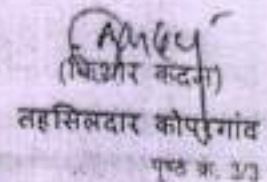 (किशोर कदम)
तहसिलदार कोपरगांव
पृष्ठ क्र. 3/3